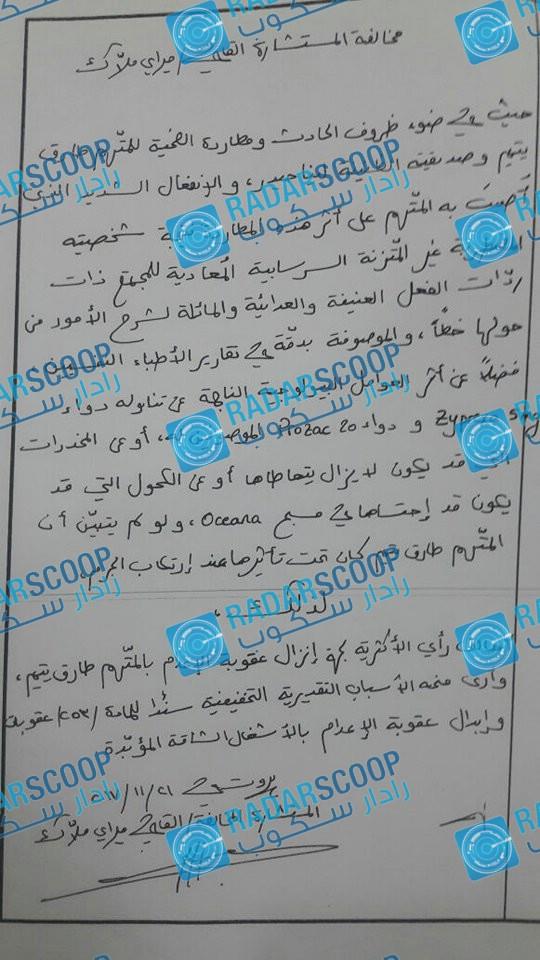 مخالفة المستشارة القاضي ميراي ملاّك
حيث في ضوء ظروف الحادث ومطاردة الضحية للمتّهم طارق
يتيم وصديقته الطبيبة لينا حيدر، والإنفعال الشديد الذي
أُصيبَ به المتّهم على أثر هذه المطاردة نتيجة شخصيته
غير المتّزنة السرسابية المُعادية للمجتمع ذات
ردّات الفعل العنيفة والعدائية والمائلة لشرح الأمور من
حولها خطأً، والموصوفة بدقّة في تقارير الأطباء النفسيين،
فضلاً عن أثر العوامل الناتجة عن تناوله دواء
Zyprexa 5mg و دواء Prozac 20 الموصوفين له، أو عن المخدرات
التي قد يكون لا يزال يتعاطاها أو عن الكحول التي قد
يكون قد إحتساها في مسبح Oceana، ولو لم يتبيّن أن
المتّهم طارق يتيم كان تحت تأثيرها عند إرتكاب الجرم،
لذلك،
أخالف رأي الأكثرية لجهة إنزال عقوبة الإعدام بالمتّهم طارق يتيم،
وأرى منحه الأسباب التقديرية التخفيفية سنداً للمادة /٢٥٣/ عقوبات
وإبدال عقوبة الإعدام بالأشغال الشاقة المؤبّدة
بيروت في ٢١/١١/٢٠١٧
المستشارة المخالفة/ القاضي ميراي ملاّك
RADARSCOOP
رادار سكوب